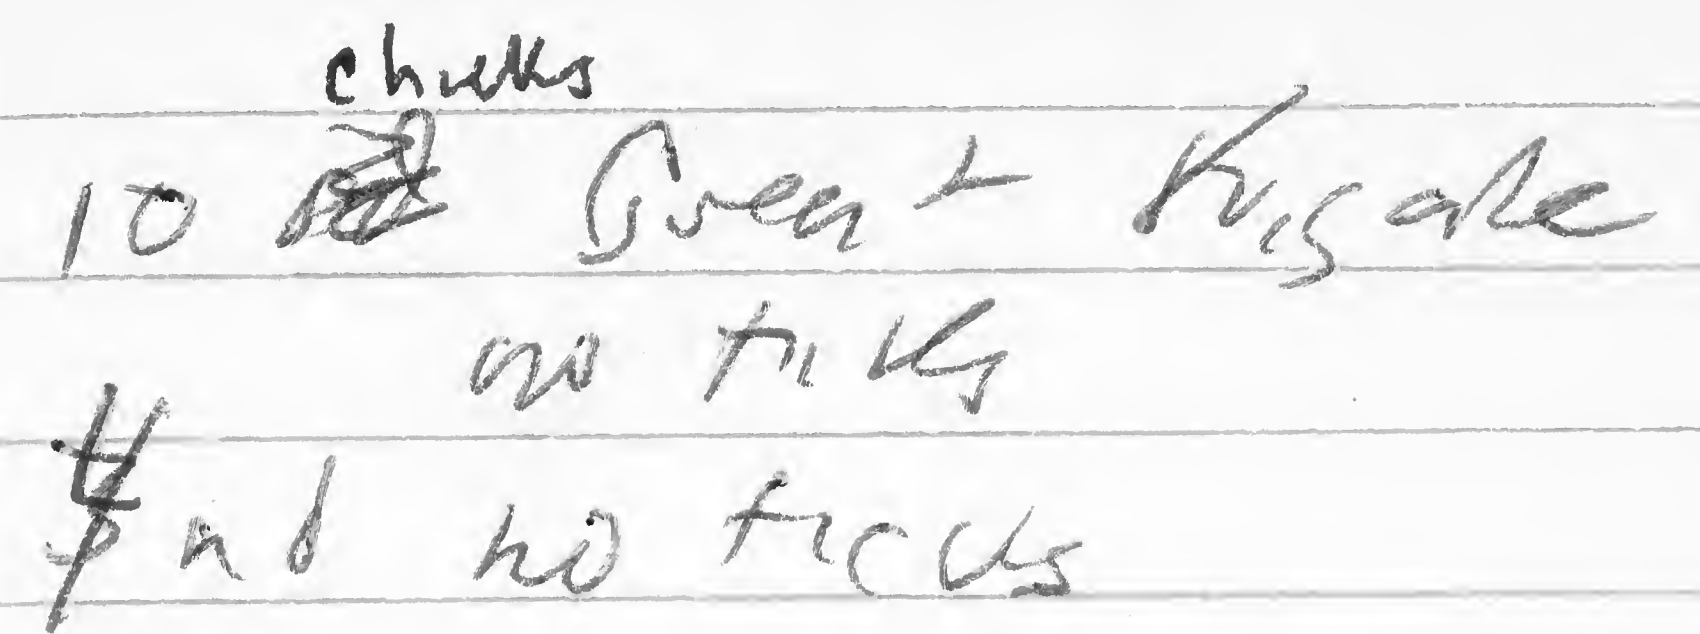 chicks
10 Great Frigate
no ticks
and no ticks